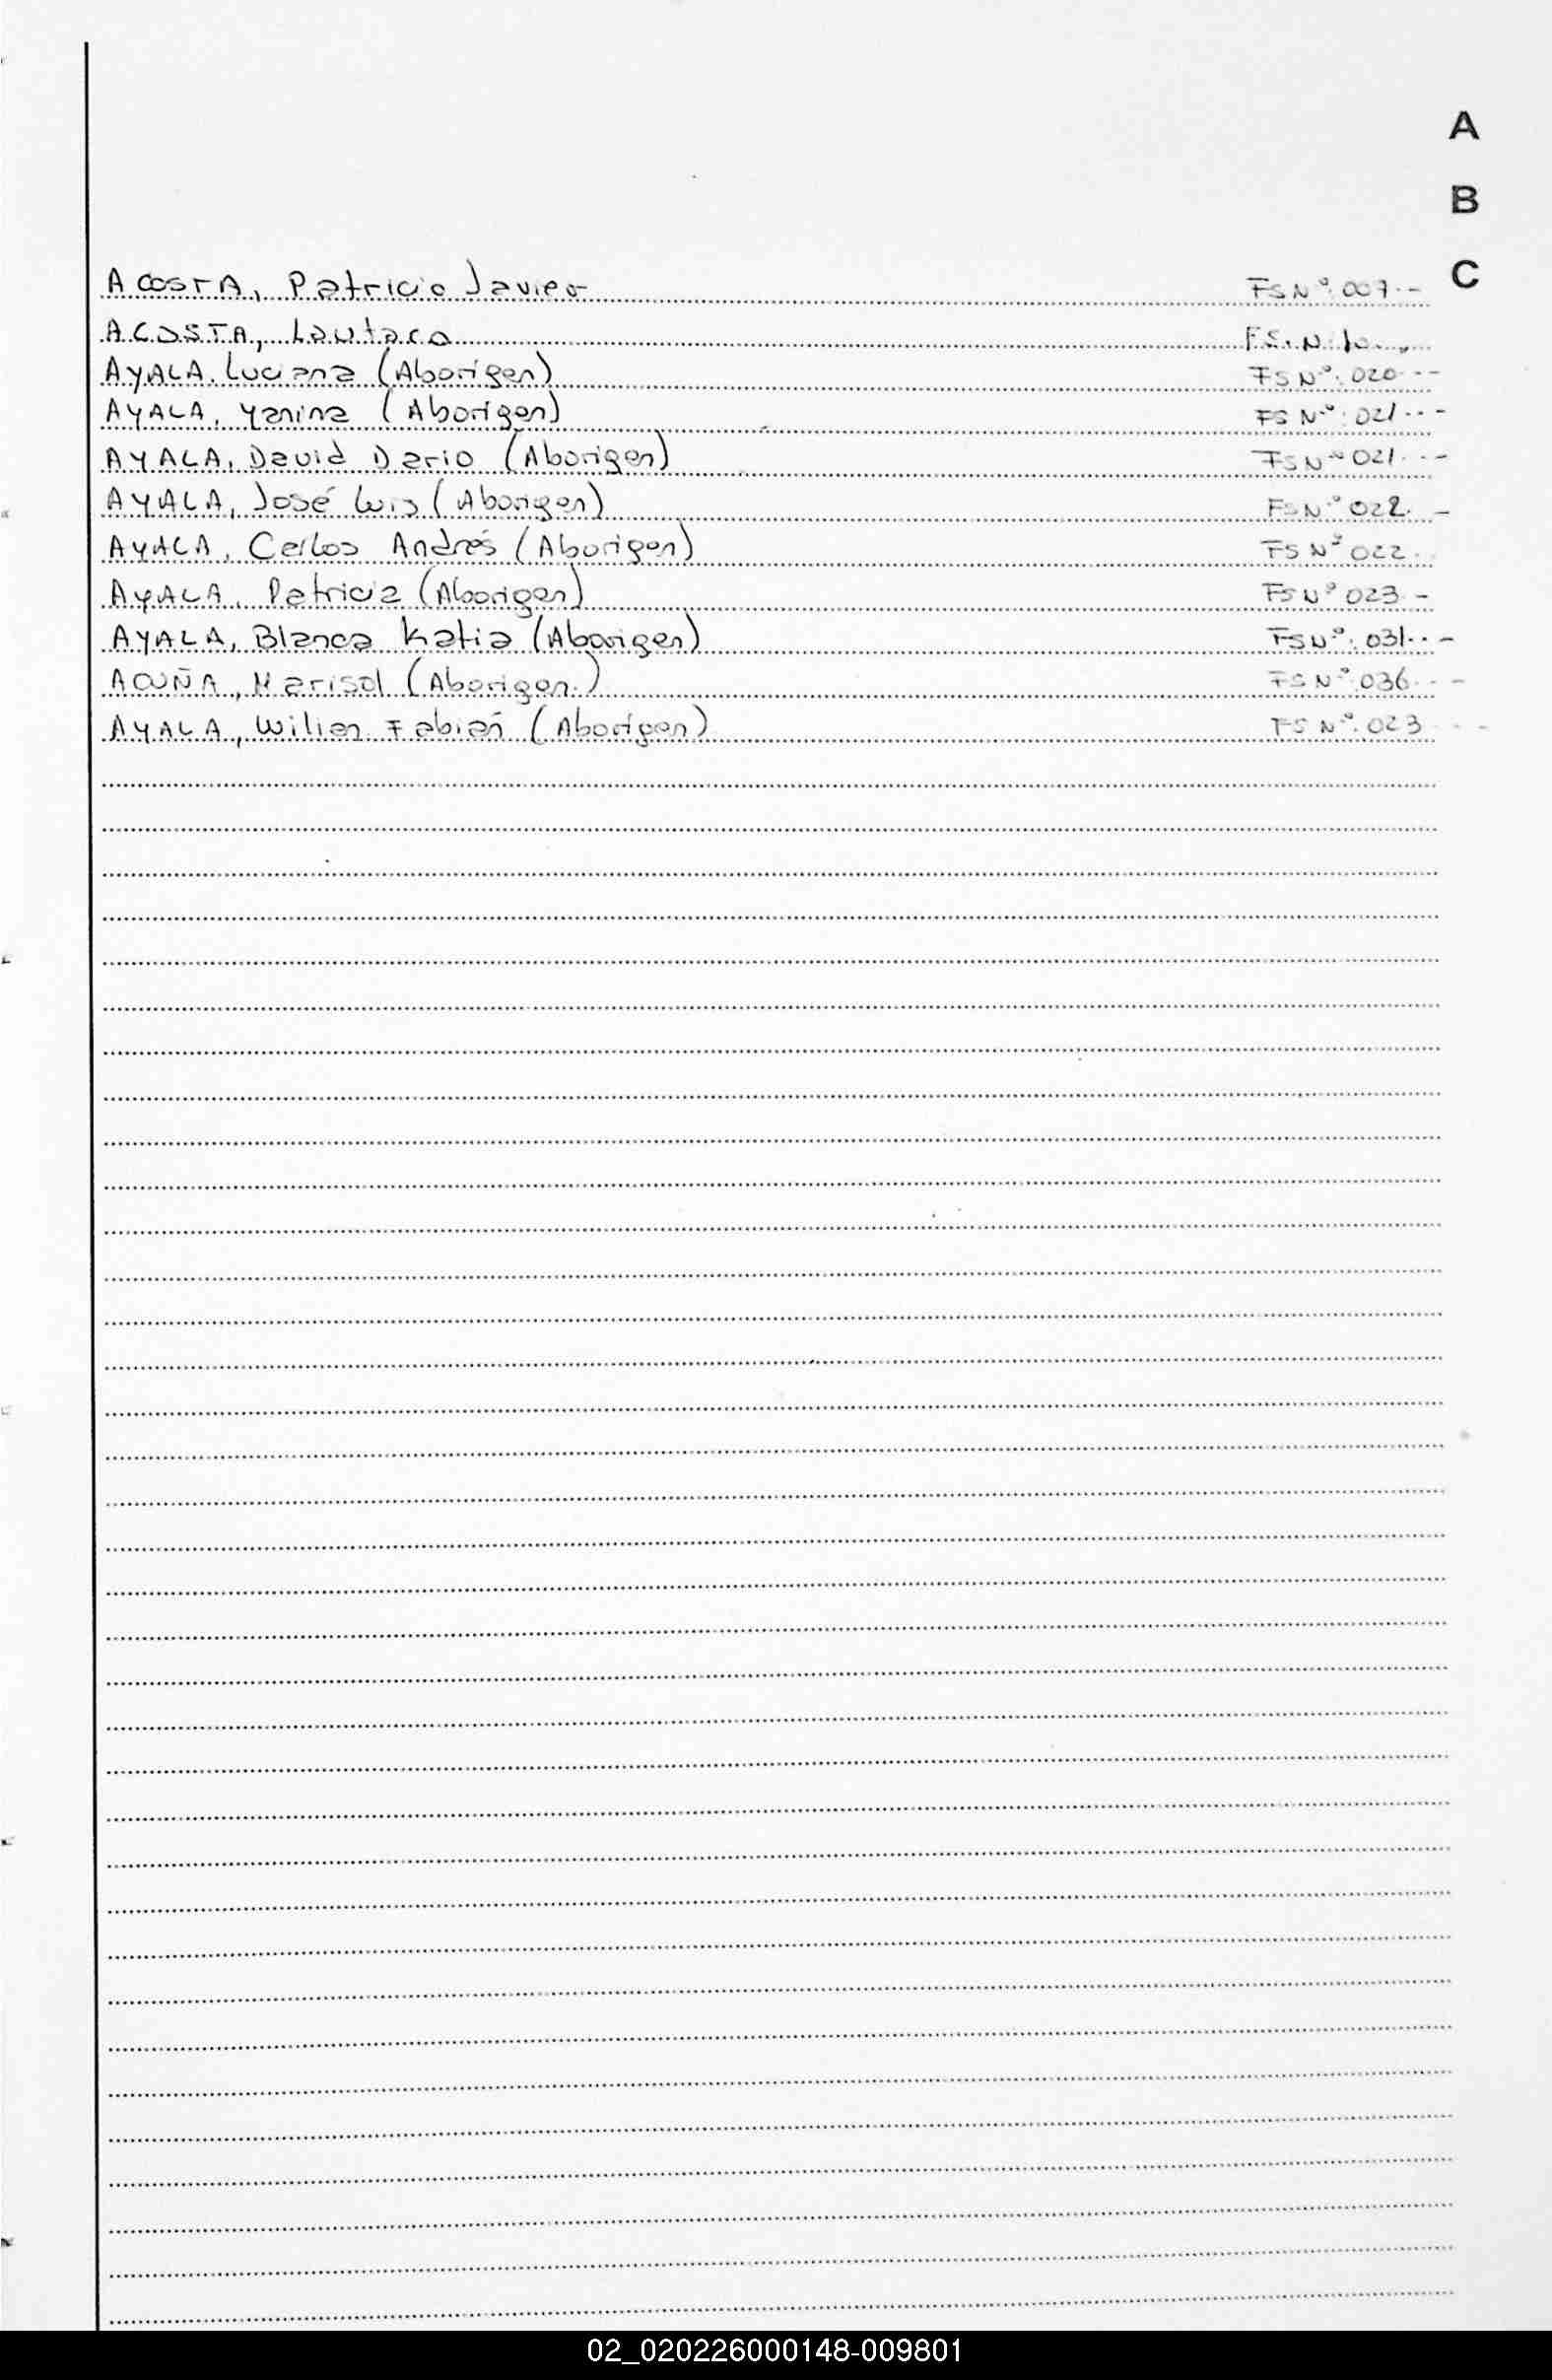 A
B
C
ACOSTA, Patricio Javier FS Nº: 007.-
ACOSTA, Lautaro FS. N: 10
AYALA, Luciana (Aborígen) FS Nº: 020.--
AYALA, Yanina (Aborígen) FS Nº: 021.--
AYALA, David Dario (Aborigen) FS Nº 021.--
AYALA, José Luis (Aborigen) FS Nº 022.-
AYALA, Carlos Andrés (Aborigen) FS Nº 022.
AYALA, Patricia (Aborigen) FS Nº 023.-
AYALA, Blanca Katia (Aborigen) FS Nº: 031.--
ACUÑA, Marisol (Aborigen.) FS Nº: 036.--
AYALA, Wilian Fabián (Aborígen) FS Nº: 023.--
02_020226000148-009801